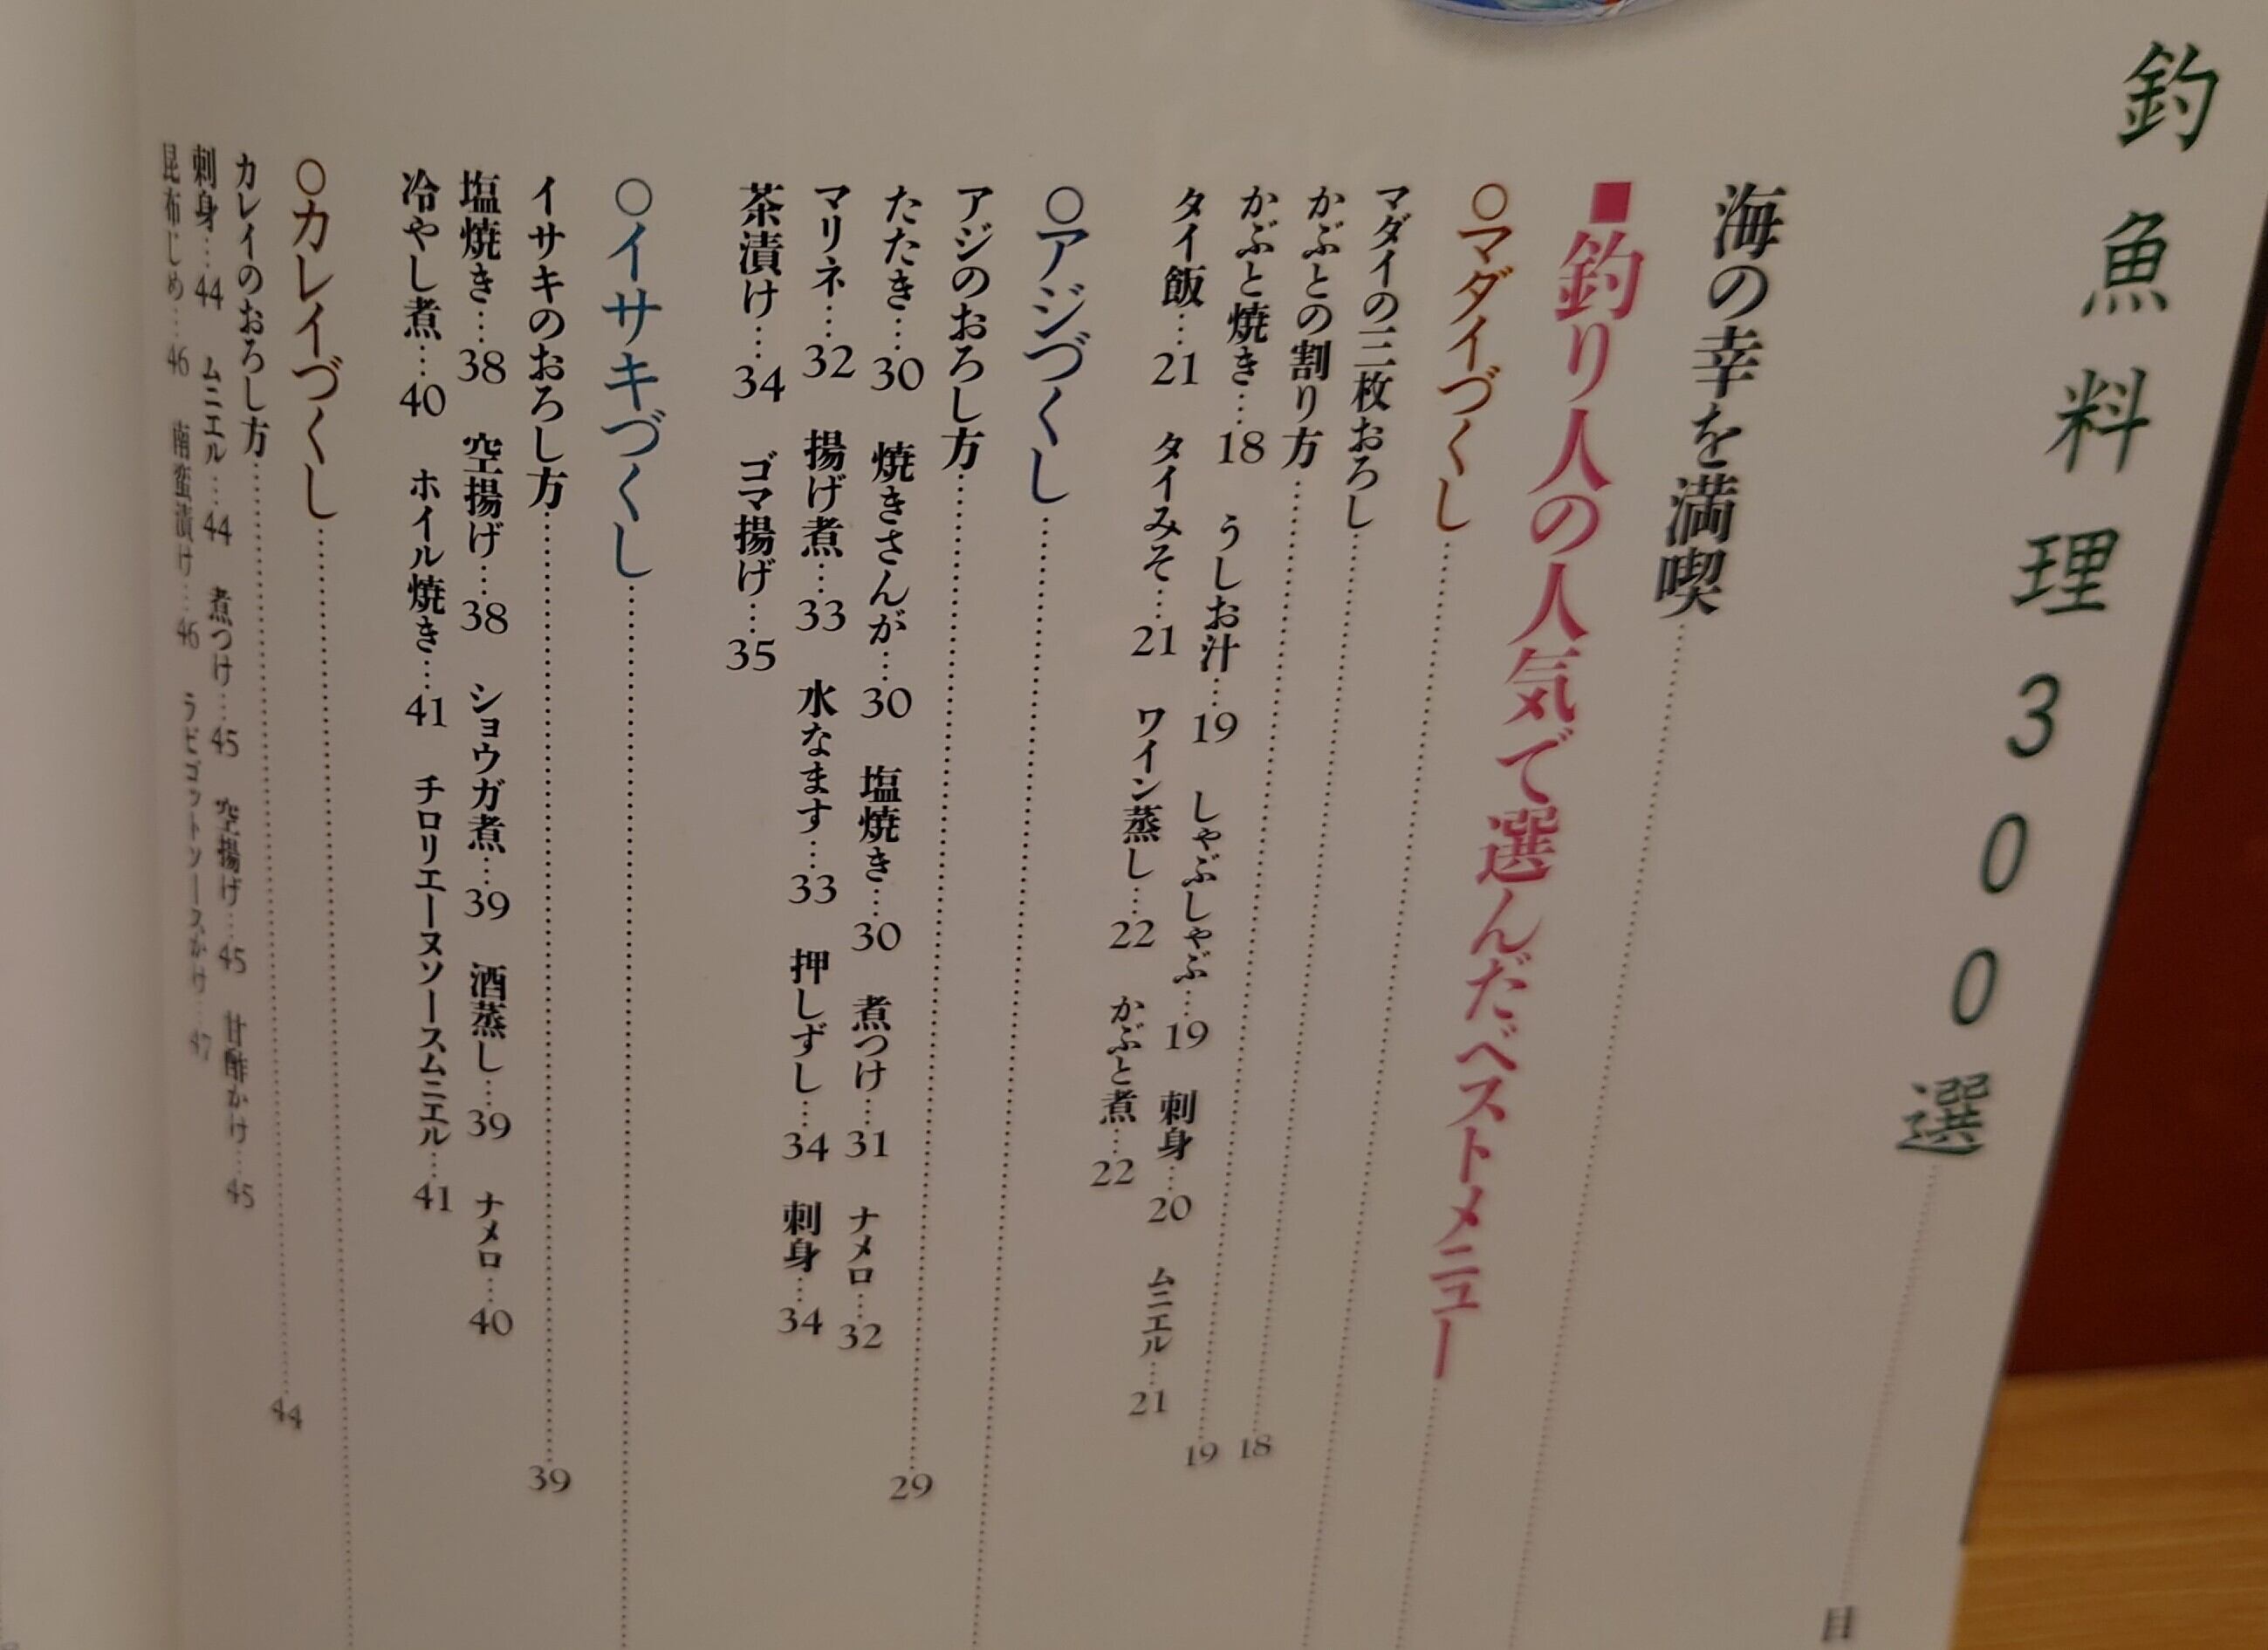 釣魚料理300選……目
海の幸を満喫……
■釣り人の人気で選んだベストメニュー……
○マダイづくし……
マダイの三枚おろし……18
かぶとの割り方……19
かぶと焼き…18 うしお汁…19 しゃぶしゃぶ…19 刺身…20 ムニエル…21
タイ飯…21 タイみそ…21 ワイン蒸し…22 かぶと煮…22
○アジづくし……
アジのおろし方……29
たたき…30 焼きさんが…30 塩焼き…30 煮つけ…31 ナメロ…32
マリネ…32 揚げ煮…33 水なます…33 押しずし…34 刺身…34
茶漬け…34 ゴマ揚げ…35
○イサキづくし……
イサキのおろし方……39
塩焼き…38 空揚げ…38 ショウガ煮…39 酒蒸し…39 ナメロ…40
冷やし煮…40 ホイル焼き…41 チロリエーヌソースムニエル…41
○カレイづくし……
カレイのおろし方……44
刺身…44 ムニエル…44 煮つけ…45 空揚げ…45 甘酢かけ…45
昆布じめ…46 南蛮漬け…46 ラビゴットソースかけ…47